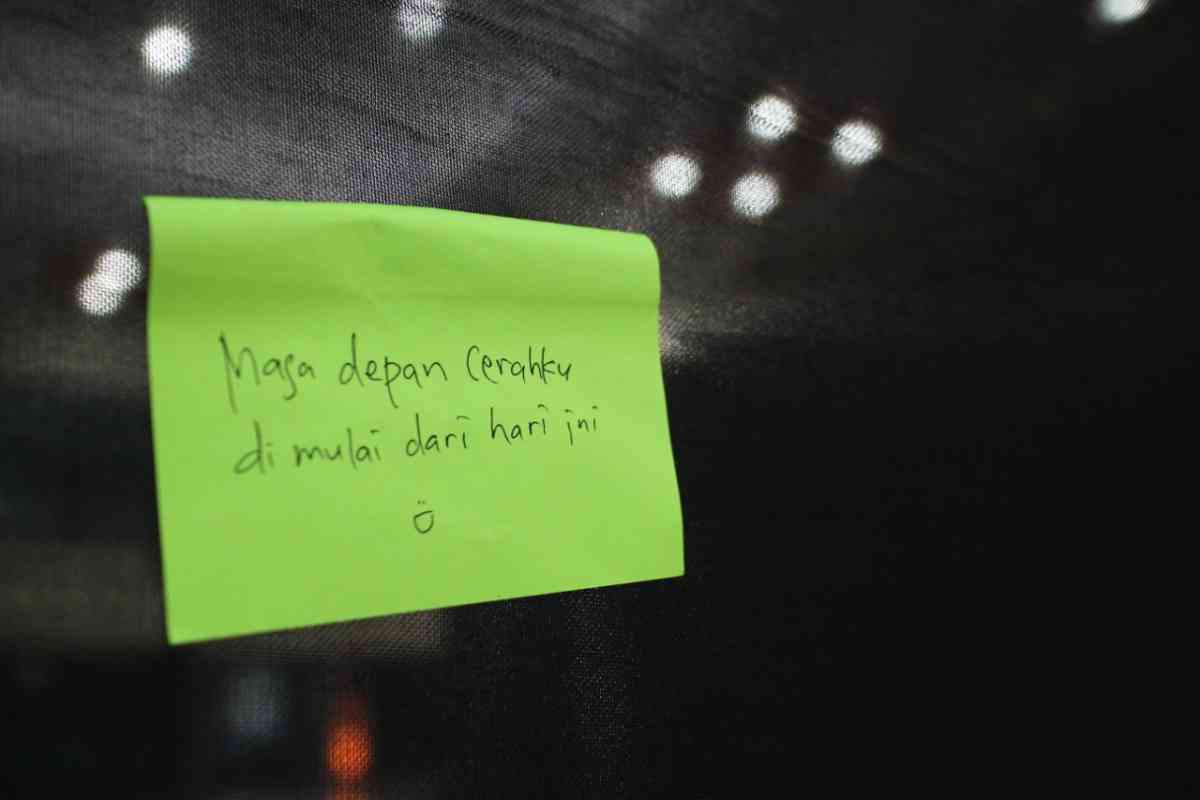 Masa depan Cerahku
di mulai dari hari ini